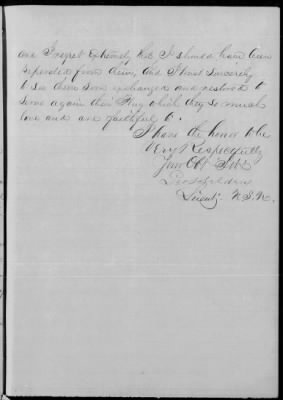 and I regret extremely that I should have been
seperated from them, and I most sincerely
to see them soon exchanged and restored to
serve again their Flag which they so much
love and are faithful to.
I have the honor to be
Very Respectfully
Your Obt Servt
Lieut. U.S.N.